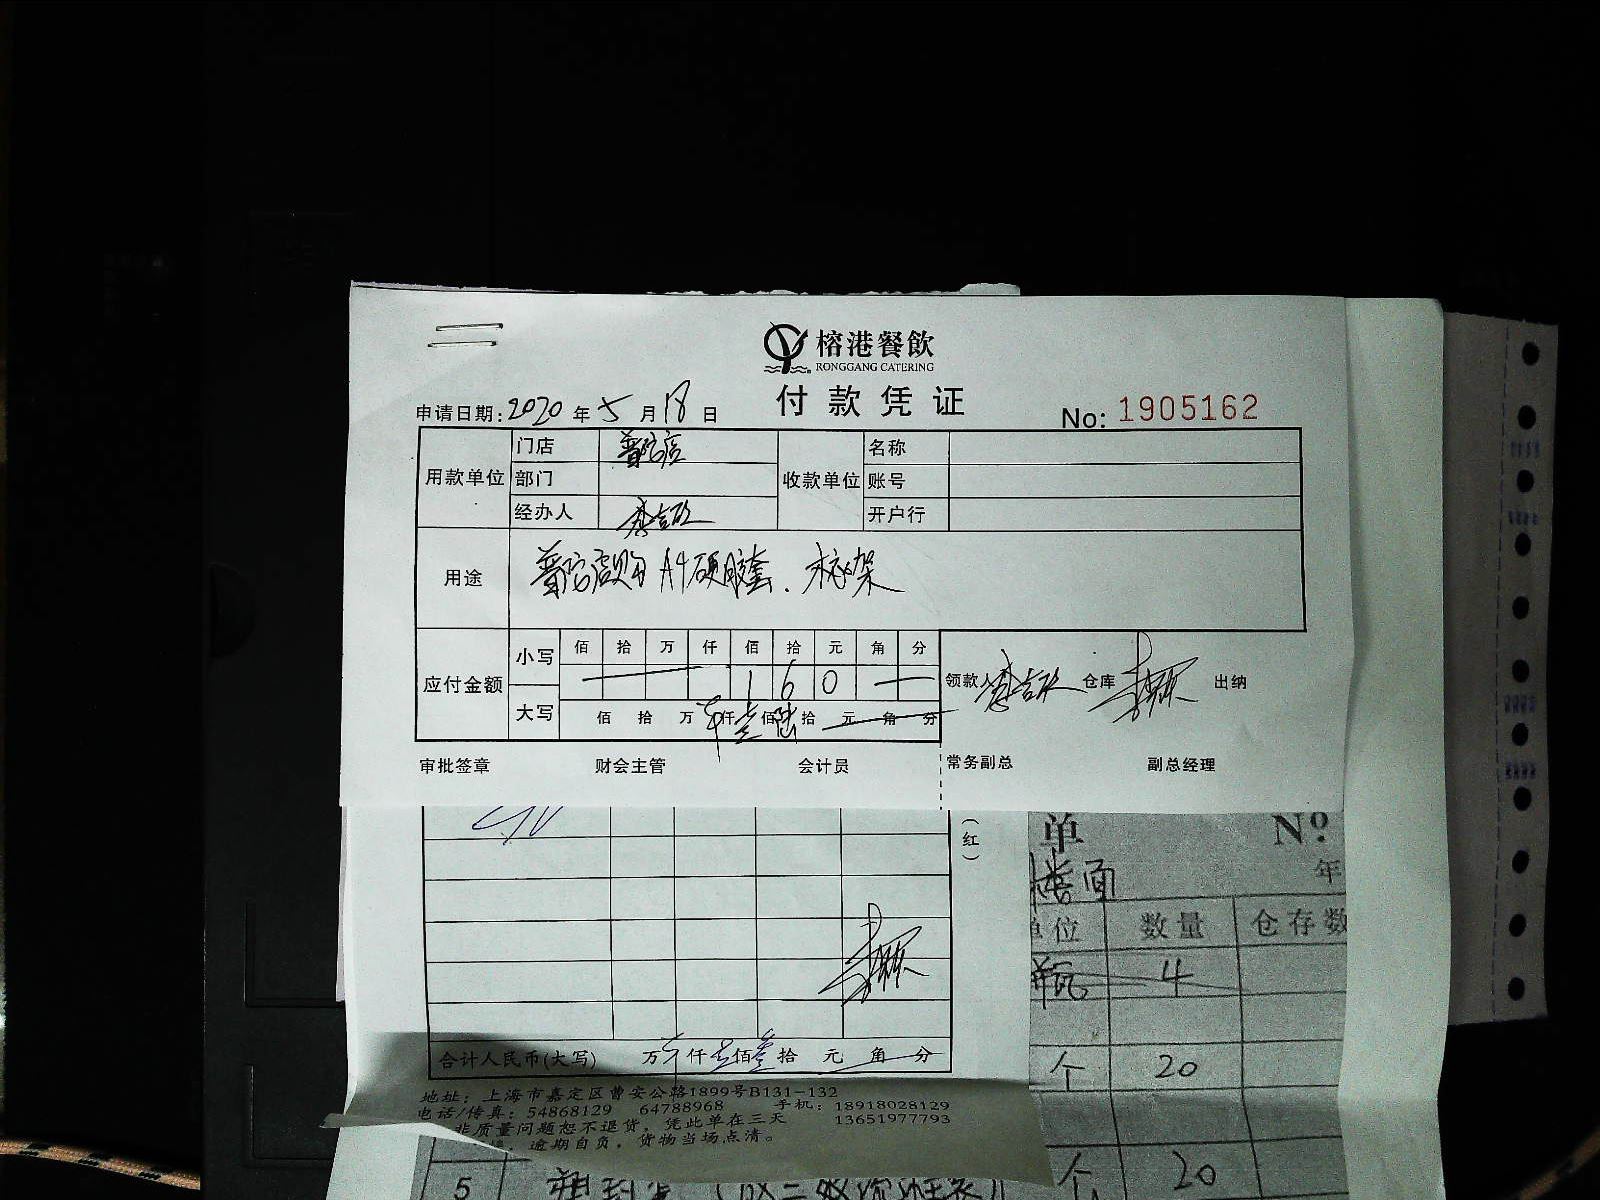 榕港餐飲
RONGGANG CATERING
付款凭证
申请日期: 2020 年 5 月 18 日
No: 1905162
用款单位 门店 普陀店 收款单位 名称
部门 账号
经办人 开户行
用途 普陀店 A4硬胶套.
应付金额 小写 佰 拾 万 仟 佰 拾 元 角 分
1 6 0
大写 佰 拾 万 仟 壹 佰 陆 拾 元 角 分
领款人 仓库 出纳
审批签章 财会主管 会计员 常务副总 副总经理
(红)
合计人民币(大写) 万 仟 佰 拾 元 角 分
地址: 上海市嘉定区曹安公路1899号B131-132
电话/传真: 54868129 64788968 手机: 18918028129
13651977793
非质量问题恕不退货, 凭此单在三天
逾期自负, 货物当场点清。
单 Nº
楼面 年
单位 数量 仓存数
瓶 4
个 20
个 20
5